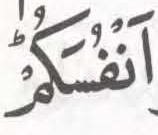 اَنْفُسَكُمْؕ